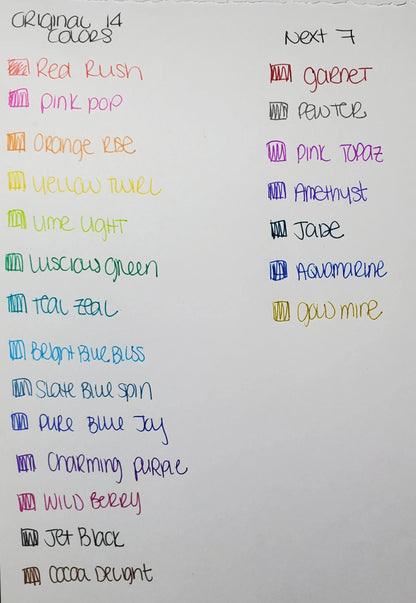 ORIGINAL 14
COLORS
Red Rush
Pink Pop
Orange Rise
Yellow Twirl
Lime Light
Luscious Green
Teal Zeal
Bright Blue Bliss
Slate Blue Spin
Pure Blue Joy
Charming Purple
Wild Berry
Jet Black
Cocoa Delight
Next 7
Garnet
Pewter
Pink Topaz
Amethyst
Jade
Aquamarine
Gold Mine